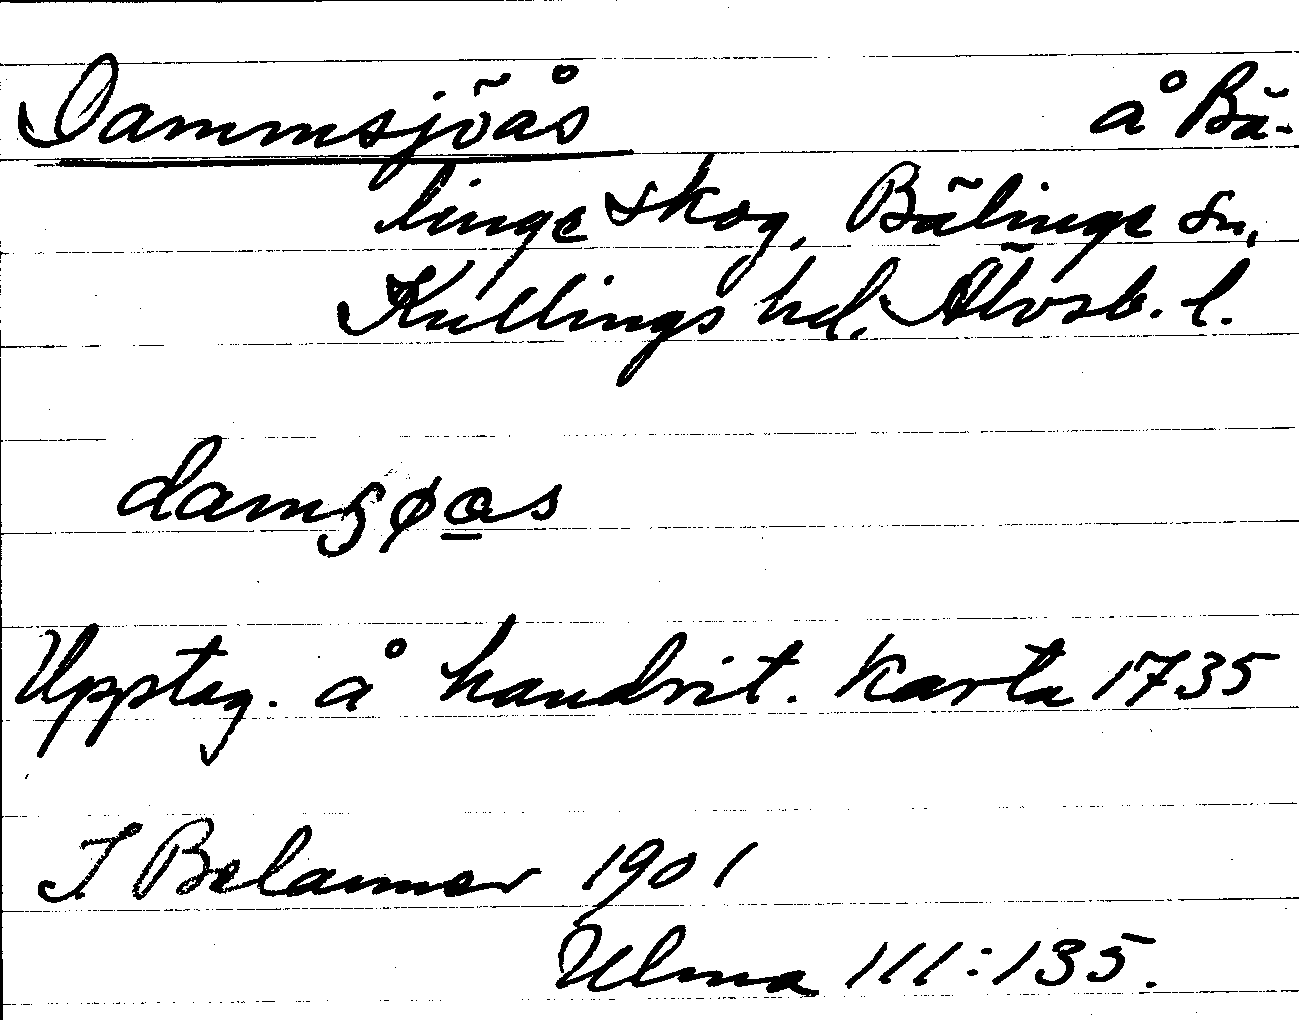 Dammsjöås å Bä-
linge skog, Bälinge sn,
Kullings hd, Älvsb. l.
damʂøas
Upptag. å handrit. Karta 1735
I Belanner 1901
Ulma 111:135.